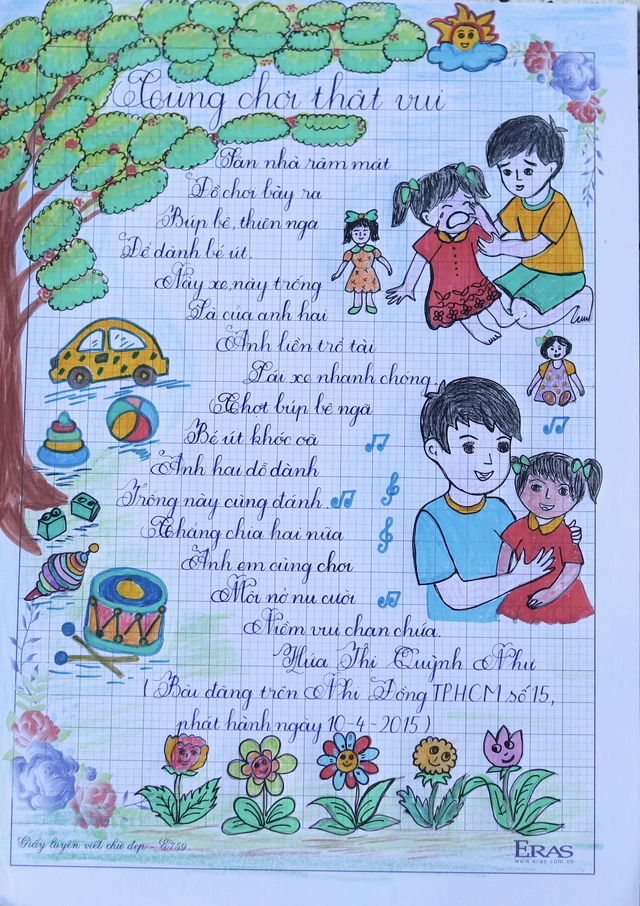 Cùng chơi thật vui
Sân nhà râm mát
Đồ chơi bày ra
Búp bê, thiên nga
Để dành bé út.
Này xe, này trống
Là của anh hai
Anh liền trổ tài
Lái xe nhanh chóng
Chợt búp bê ngã
Bé út khóc oà
Anh hai dỗ dành
Trống này cùng đánh
Chẳng chia hai nữa
Anh em cùng chơi
Môi nở nụ cười
Niềm vui chan chứa.
Hứa Thị Quỳnh Như
(Bài đăng trên Nhi Đồng TP.HCM số 15,
phát hành ngày 10-4-2015)
Giấy luyện viết chữ đẹp - E789
ERAS
www.eras.com.vn